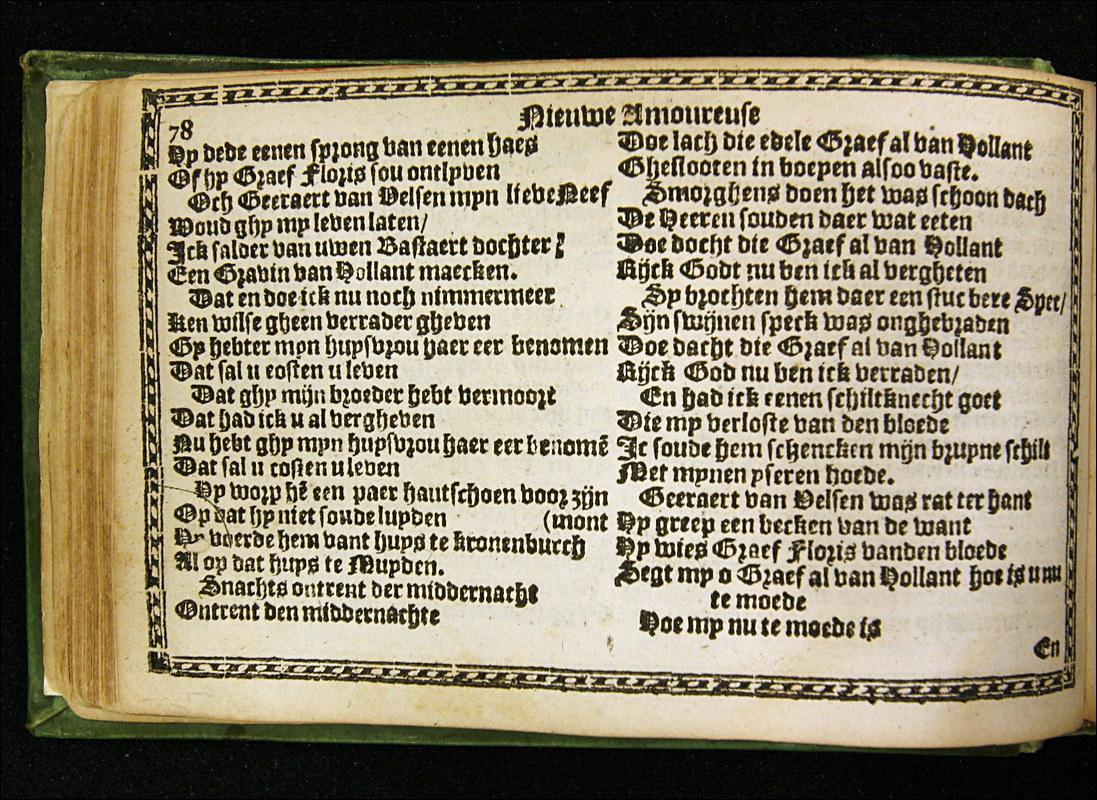 Nieuwe Amoureuse
78
Hy dede eenen sprong van eenen haes
Of hy Graef Floris sou ontlyven
Och Geeraert van Velsen myn lieve Neef
Woud ghy my leven laten/
Ick salder van uwen Bastaert dochter
Een Gravin van Hollant maecken.
Dat en doe ick nu noch nimmermeer
Ken wilse gheen verrader gheven
Gy hebter myn huysvrou haer eer benomen
Dat sal u costen u leven
Dat ghy mijn broeder hebt vermoort
Dat had ick u al vergheven
Nu hebt ghy myn huysvrou haer eer benomē
Dat sal u costen u leven
Hy worp hē een paer hantschoen voor zijn
Op dat hy niet soude luyden (mont
Hy voerde hem vant huys te kronenburch
Al op dat huys te Muyden.
Snachts ontrent der middernacht
Ontrent den middernachte
Doe lach die edele Graef al van Hollant
Ghesslooten in boeyen alsoo vaste.
Smorghens doen het was schoon dach
De Heeren souden daer wat eeten
Doe docht die Graef al van Hollant
Rijck Godt nu ben ick al vergheten
Sy brochten hem daer een stuc bere Spec/
Sijn swijnen speck was onghebraden
Doe dacht die Graef al van Hollant
Rijck God nu ben ick verraden/
En had ick eenen schiltknecht goet
Die my verloste van den bloede
Ic soude hem schencken mijn bruyne schilt
Met mynen yseren hoede.
Geeraert van Velsen was rat ter hant
Hy greep een becken van de want
Hy wies Graef Floris vanden bloede
Segt my o Graef al van Hollant hoe is u nu
te moede
Hoe my nu te moede is
En